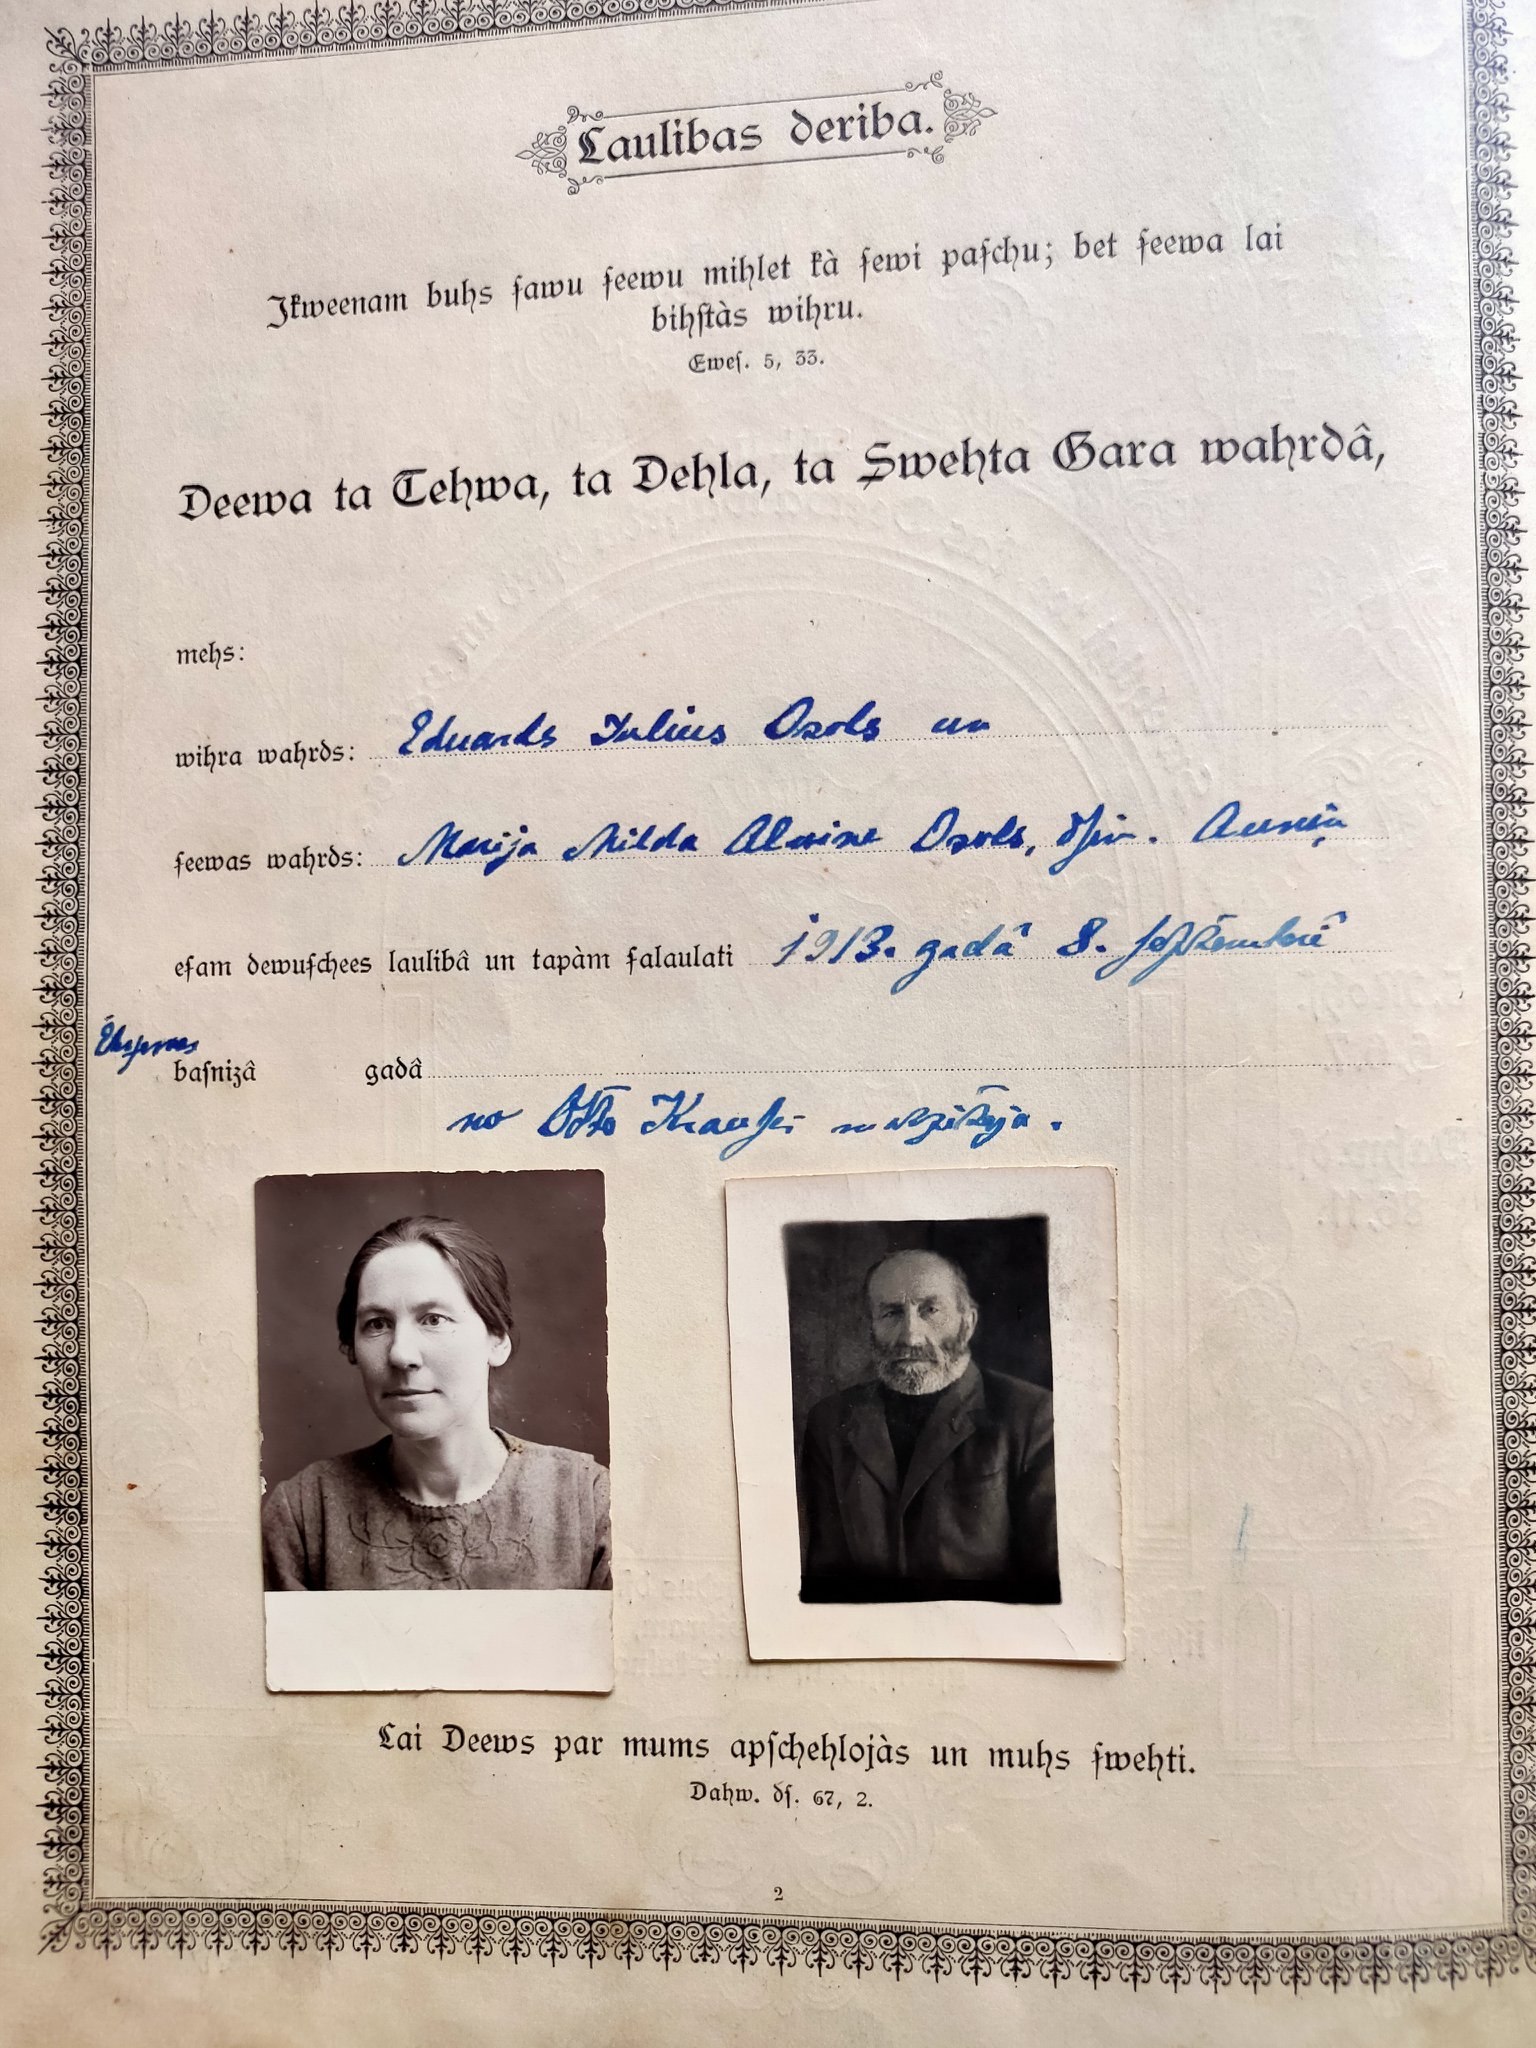 Laulibas deriba.
Ikweenam buhs ſawu ſeewu mihlet kà ſewi paſchu; bet ſeewa lai
bihſtàs wihru.
Eweſ. 5, 33.
Deewa ta Tehwa, ta Dehla, ta Swehta Gara wahrdâ,
mehs:
wihra wahrds: Eduards Julius Osols un
ſeewas wahrds: Marija Milda Alwine Osols, dſim.
eſam dewuſchees laulibâ un tapàm ſalaulati 1913. gadâ 8. ſeptembrî
baſnizâ gadâ
no Otto
Lai Deews par mums apſchehlojàs un muhs ſwehti.
Dahw. dſ. 67, 2.
2